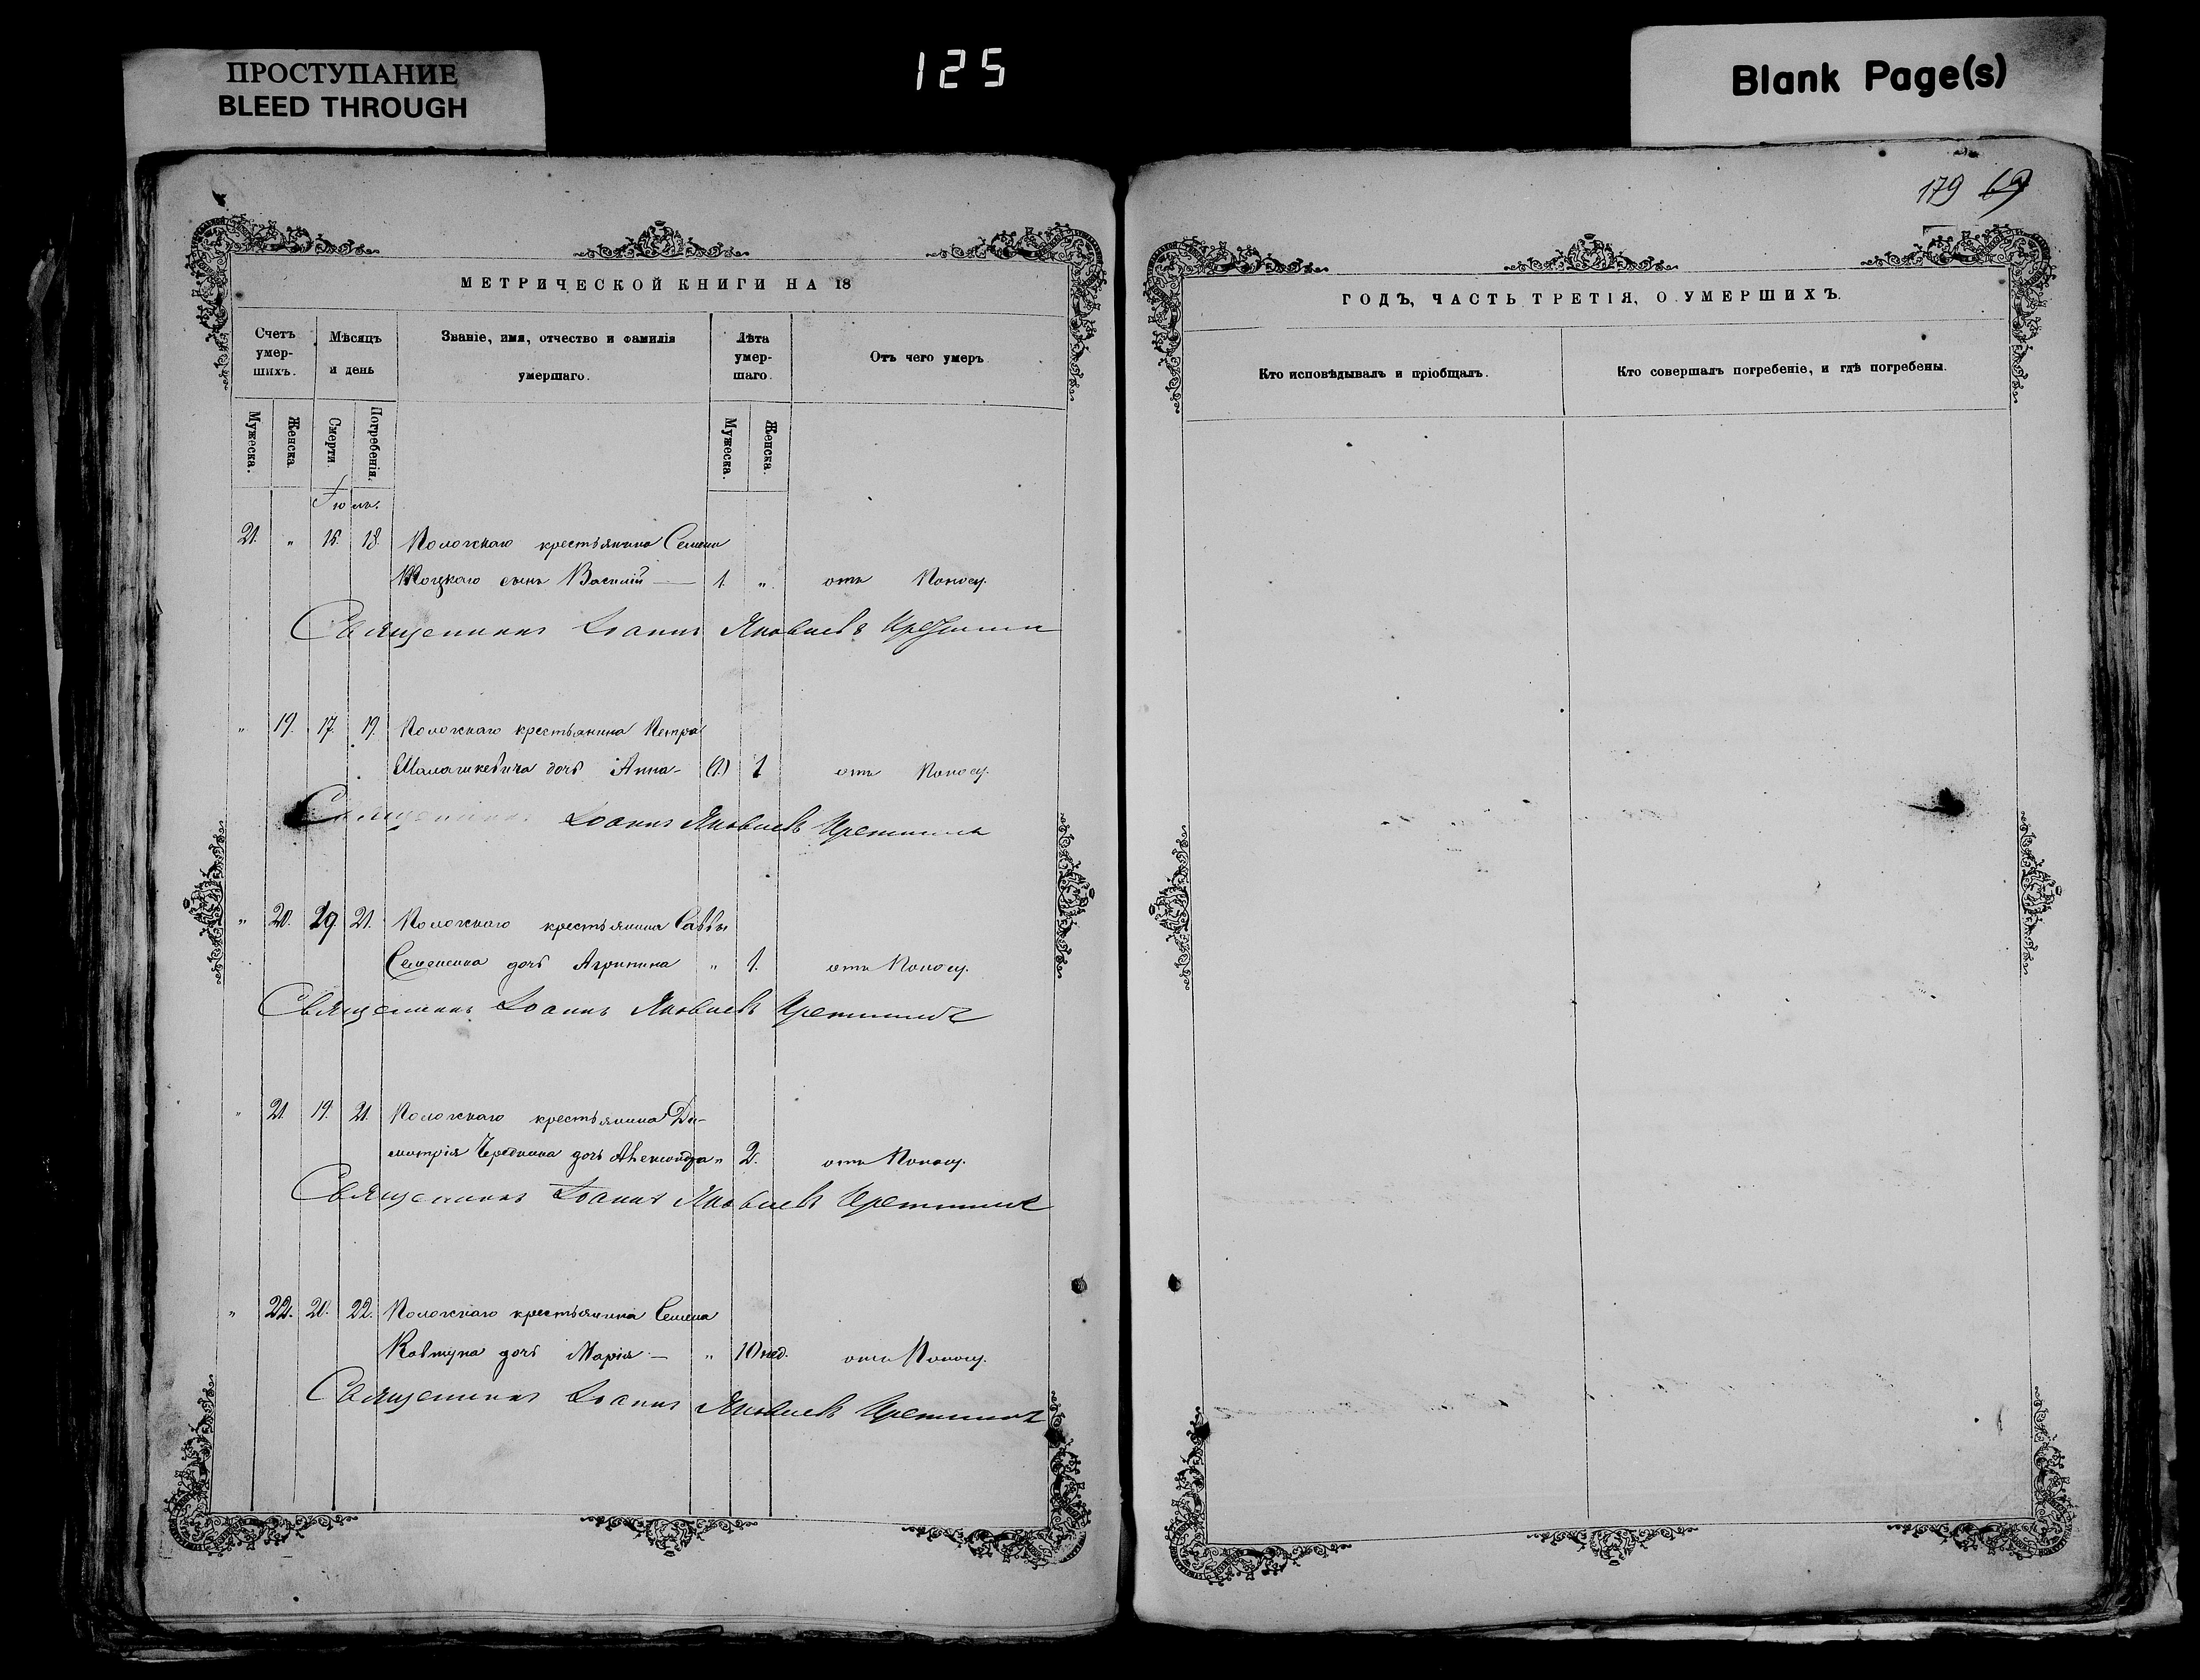 ПРОСТУПАНИЕ
BLEED THROUGH
125
Blank Page(s)
179 69
МЕТРИЧЕСКОЙ КНИГИ НА 18
Счетъ умер-шихъ.
Мѣсяцъ и день
Званіе, имя, отчество и фамилія умершаго.
Лѣта умер-шаго.
Отъ чего умеръ
Мужеска.
Женска
Смерти
Погребенія.
Мужеска.
Женска.
Іюль.
21. " 18. крестьянина Семена
сынъ Василій — 1. " отъ Поносу.
Священникъ Іоаннъ Яковлевъ
" 19. 17. 19. крестьянина Петра
Малашкевича дочь Анна - (1.) 1 отъ Поносу.
Священникъ Іоаннъ Яковлевъ
" 20. 21. крестьянина Саввы
дочь Агрипина " 1. отъ Поносу.
Священникъ Іоаннъ Яковлевъ
" 21. 19. 21. крестьянина Ди-
митрія дочь Александра " 2. отъ Поносу.
Священникъ Іоаннъ Яковлевъ
" 22. 20. 22. крестьянина Семена
Ковтуна дочь Марія — " 10 нед. отъ Поносу.
Священникъ Іоаннъ Яковлевъ
ГОДЪ, ЧАСТЬ ТРЕТІЯ, О УМЕРШИХЪ.
Кто исповѣдывалъ и пріобщалъ.
Кто совершалъ погребеніе, и гдѣ погребены.